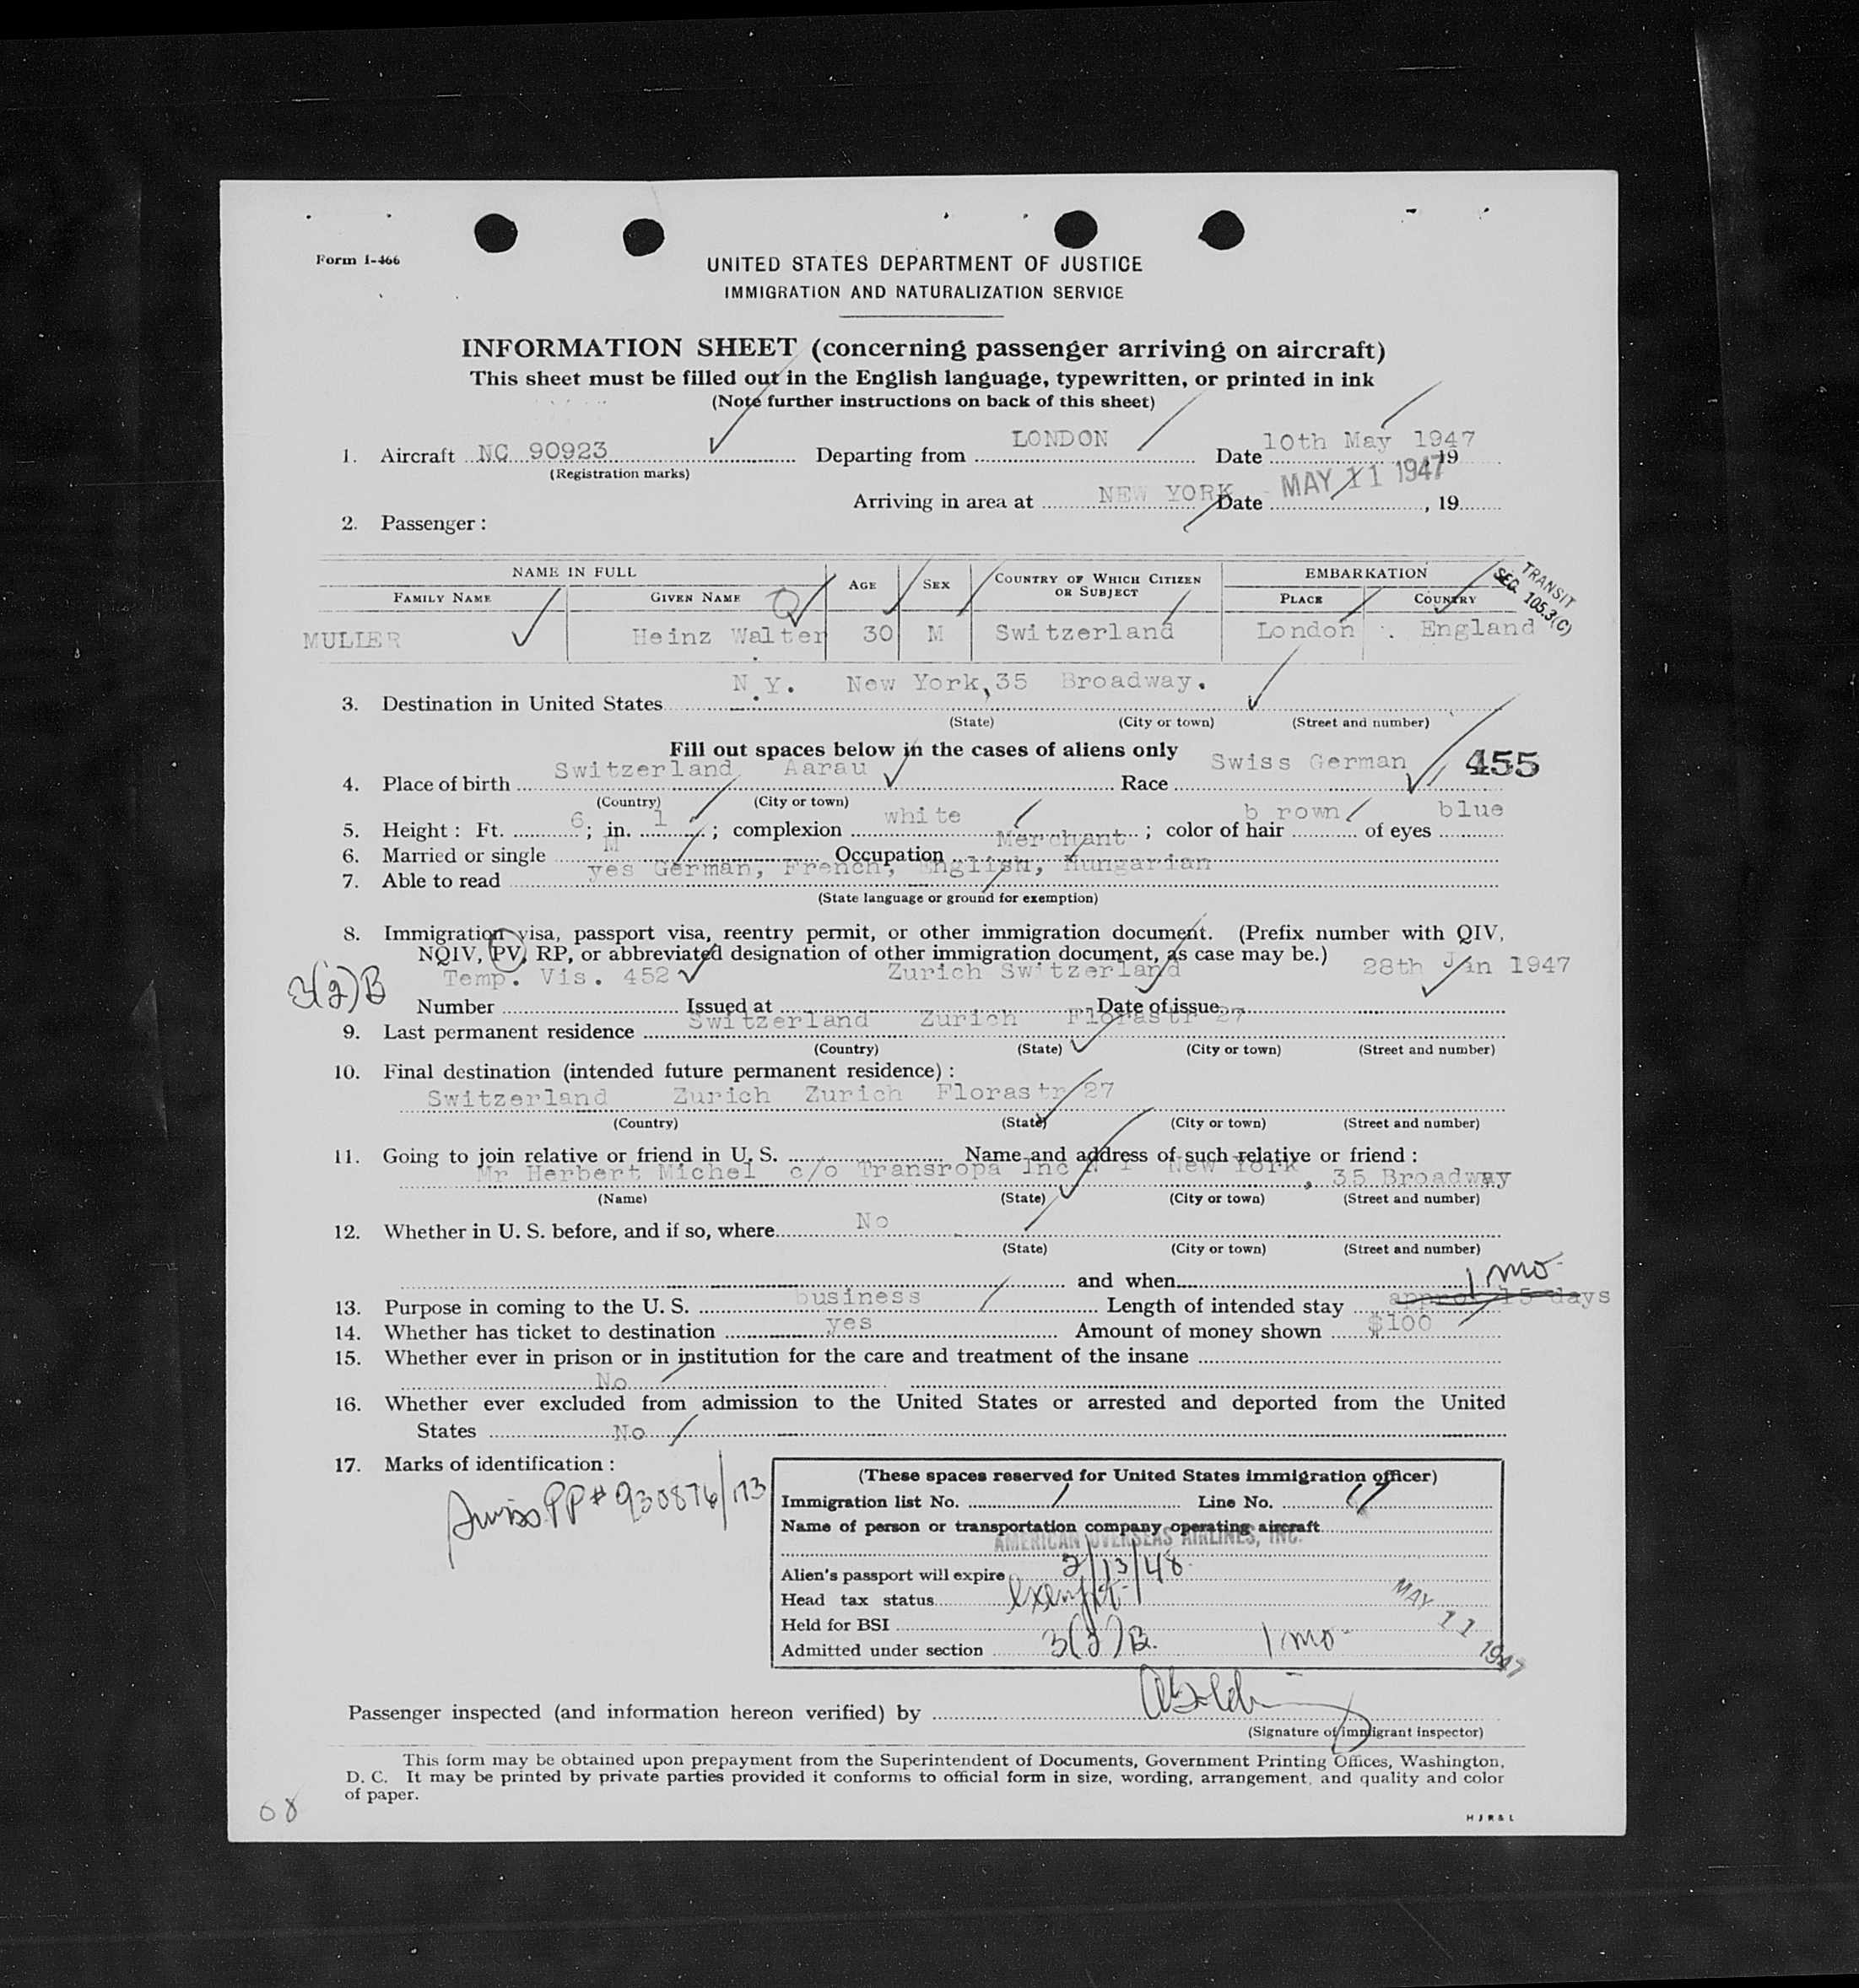 Form I-466
UNITED STATES DEPARTMENT OF JUSTICE
IMMIGRATION AND NATURALIZATION SERVICE
INFORMATION SHEET (concerning passenger arriving on aircraft)
This sheet must be filled out in the English language, typewritten, or printed in ink
(Note further instructions on back of this sheet)
1. Aircraft NC 90923 Departing from LONDON Date 10th May 1947, 19
(Registration marks)
Arriving in area at NEW YORK Date MAY 11 1947, 19
2. Passenger:
NAME IN FULL AGE SEX COUNTRY OF WHICH CITIZEN OR SUBJECT EMBARKATION TRANSIT
FAMILY NAME GIVEN NAME PLACE COUNTRY SEC. 105.3(C)
MULLER Heinz Walter 30 M Switzerland London England
3. Destination in United States N.Y. New York, 35 Broadway.
(State) (City or town) (Street and number)
Fill out spaces below in the cases of aliens only 455
4. Place of birth Switzerland Aarau Race Swiss German
(Country) (City or town)
5. Height: Ft. 6; in. 1; complexion white; color of hair b rown of eyes blue
6. Married or single M Occupation Merchant
7. Able to read yes German, French, English, Hungarian
(State language or ground for exemption)
8. Immigration visa, passport visa, reentry permit, or other immigration document. (Prefix number with QIV,
NQIV, PV, RP, or abbreviated designation of other immigration document, as case may be.)
3(2)B
Number Temp. Vis. 452 Issued at Zurich Switzerland Date of issue 28th Jan 1947
9. Last permanent residence Switzerland Zurich Florastr 27
(Country) (State) (City or town) (Street and number)
10. Final destination (intended future permanent residence):
Switzerland Zurich Zurich Florastr 27
(Country) (State) (City or town) (Street and number)
11. Going to join relative or friend in U. S. Name and address of such relative or friend:
Mr Herbert Michel c/o Transropa Inc N Y New York, 35 Broadway
(Name) (State) (City or town) (Street and number)
12. Whether in U. S. before, and if so, where No
(State) (City or town) (Street and number)
and when
1 mo-
13. Purpose in coming to the U. S. business Length of intended stay approx 15 days
14. Whether has ticket to destination yes Amount of money shown $100
15. Whether ever in prison or in institution for the care and treatment of the insane
No
16. Whether ever excluded from admission to the United States or arrested and deported from the United
States No
17. Marks of identification:
Swiss PP# 930876/173
(These spaces reserved for United States immigration officer)
Immigration list No. 1 Line No.
Name of person or transportation company operating aircraft
AMERICAN OVERSEAS AIRLINES, INC.
Alien's passport will expire 2/13/48
Head tax status exempt
Held for BSI
MAY 11 1947
Admitted under section 3(2)B. 1 mo-
Passenger inspected (and information hereon verified) by
(Signature of immigrant inspector)
This form may be obtained upon prepayment from the Superintendent of Documents, Government Printing Offices, Washington,
D. C. It may be printed by private parties provided it conforms to official form in size, wording, arrangement, and quality and color
of paper.
08
H J R & L